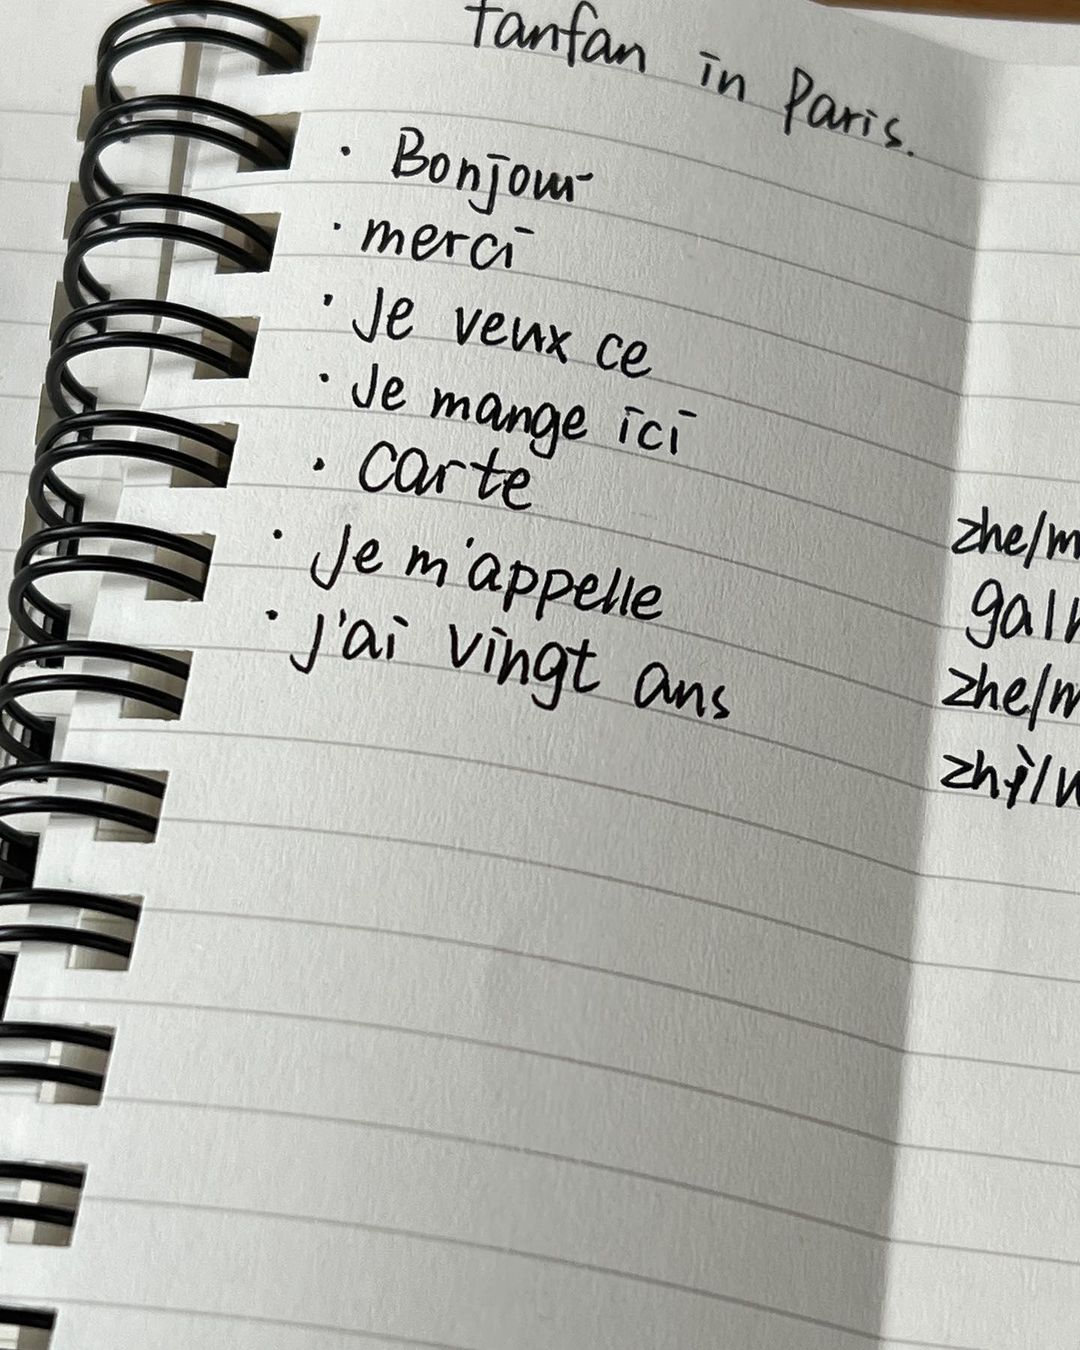 fanfan in Paris.
· Bonjour
· merci
· Je veux ce
· Je mange ici
· carte
· Je m'appelle
· J'ai vingt ans
zhe/m
ga
zhe/m
zhì/